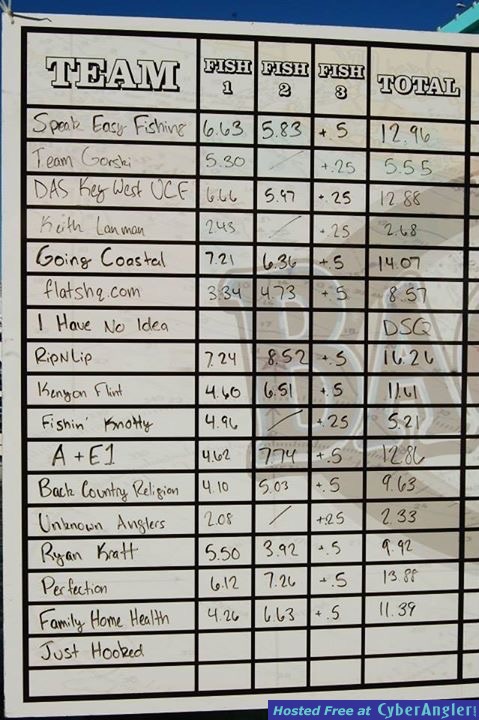 TEAM FISH 1 FISH 2 FISH 3 TOTAL
Speak Easy Fishing 6.63 5.83 +.5 12.96
Team Gorski 5.30 / +.25 5.55
DAS Key West UCF 6.66 5.97 +.25 12.88
Keith Lanman 2.43 / +.25 2.68
Going Coastal 7.21 6.36 +.5 14.07
flatshq.com 3.34 4.73 +.5 8.57
I Have No Idea DSQ
RipNLip 7.24 8.52 +.5 16.26
Kenyon Flint 4.60 6.51 +.5 11.61
Fishin' Knotty 4.96 / +.25 5.21
A + E1 4.62 7.74 +.5 12.86
Back Country Religion 4.10 5.03 +.5 9.63
Unknown Anglers 2.08 / +.25 2.33
Ryan Kratt 5.50 3.92 +.5 9.92
Perfection 6.12 7.26 +.5 13.88
Family Home Health 4.26 6.63 +.5 11.39
Just Hooked
Hosted Free at CyberAngler!